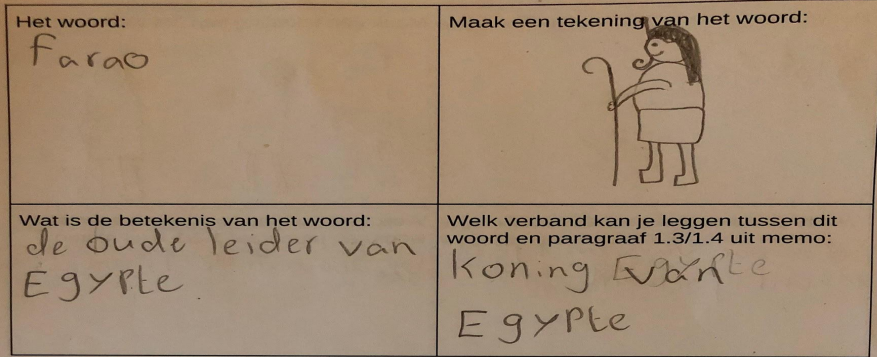 Het woord:
Farao
Maak een tekening van het woord:
Wat is de betekenis van het woord:
de oude leider van
Egypte
Welk verband kan je leggen tussen dit
woord en paragraaf 1.3/1.4 uit memo:
Koning van
Egypte